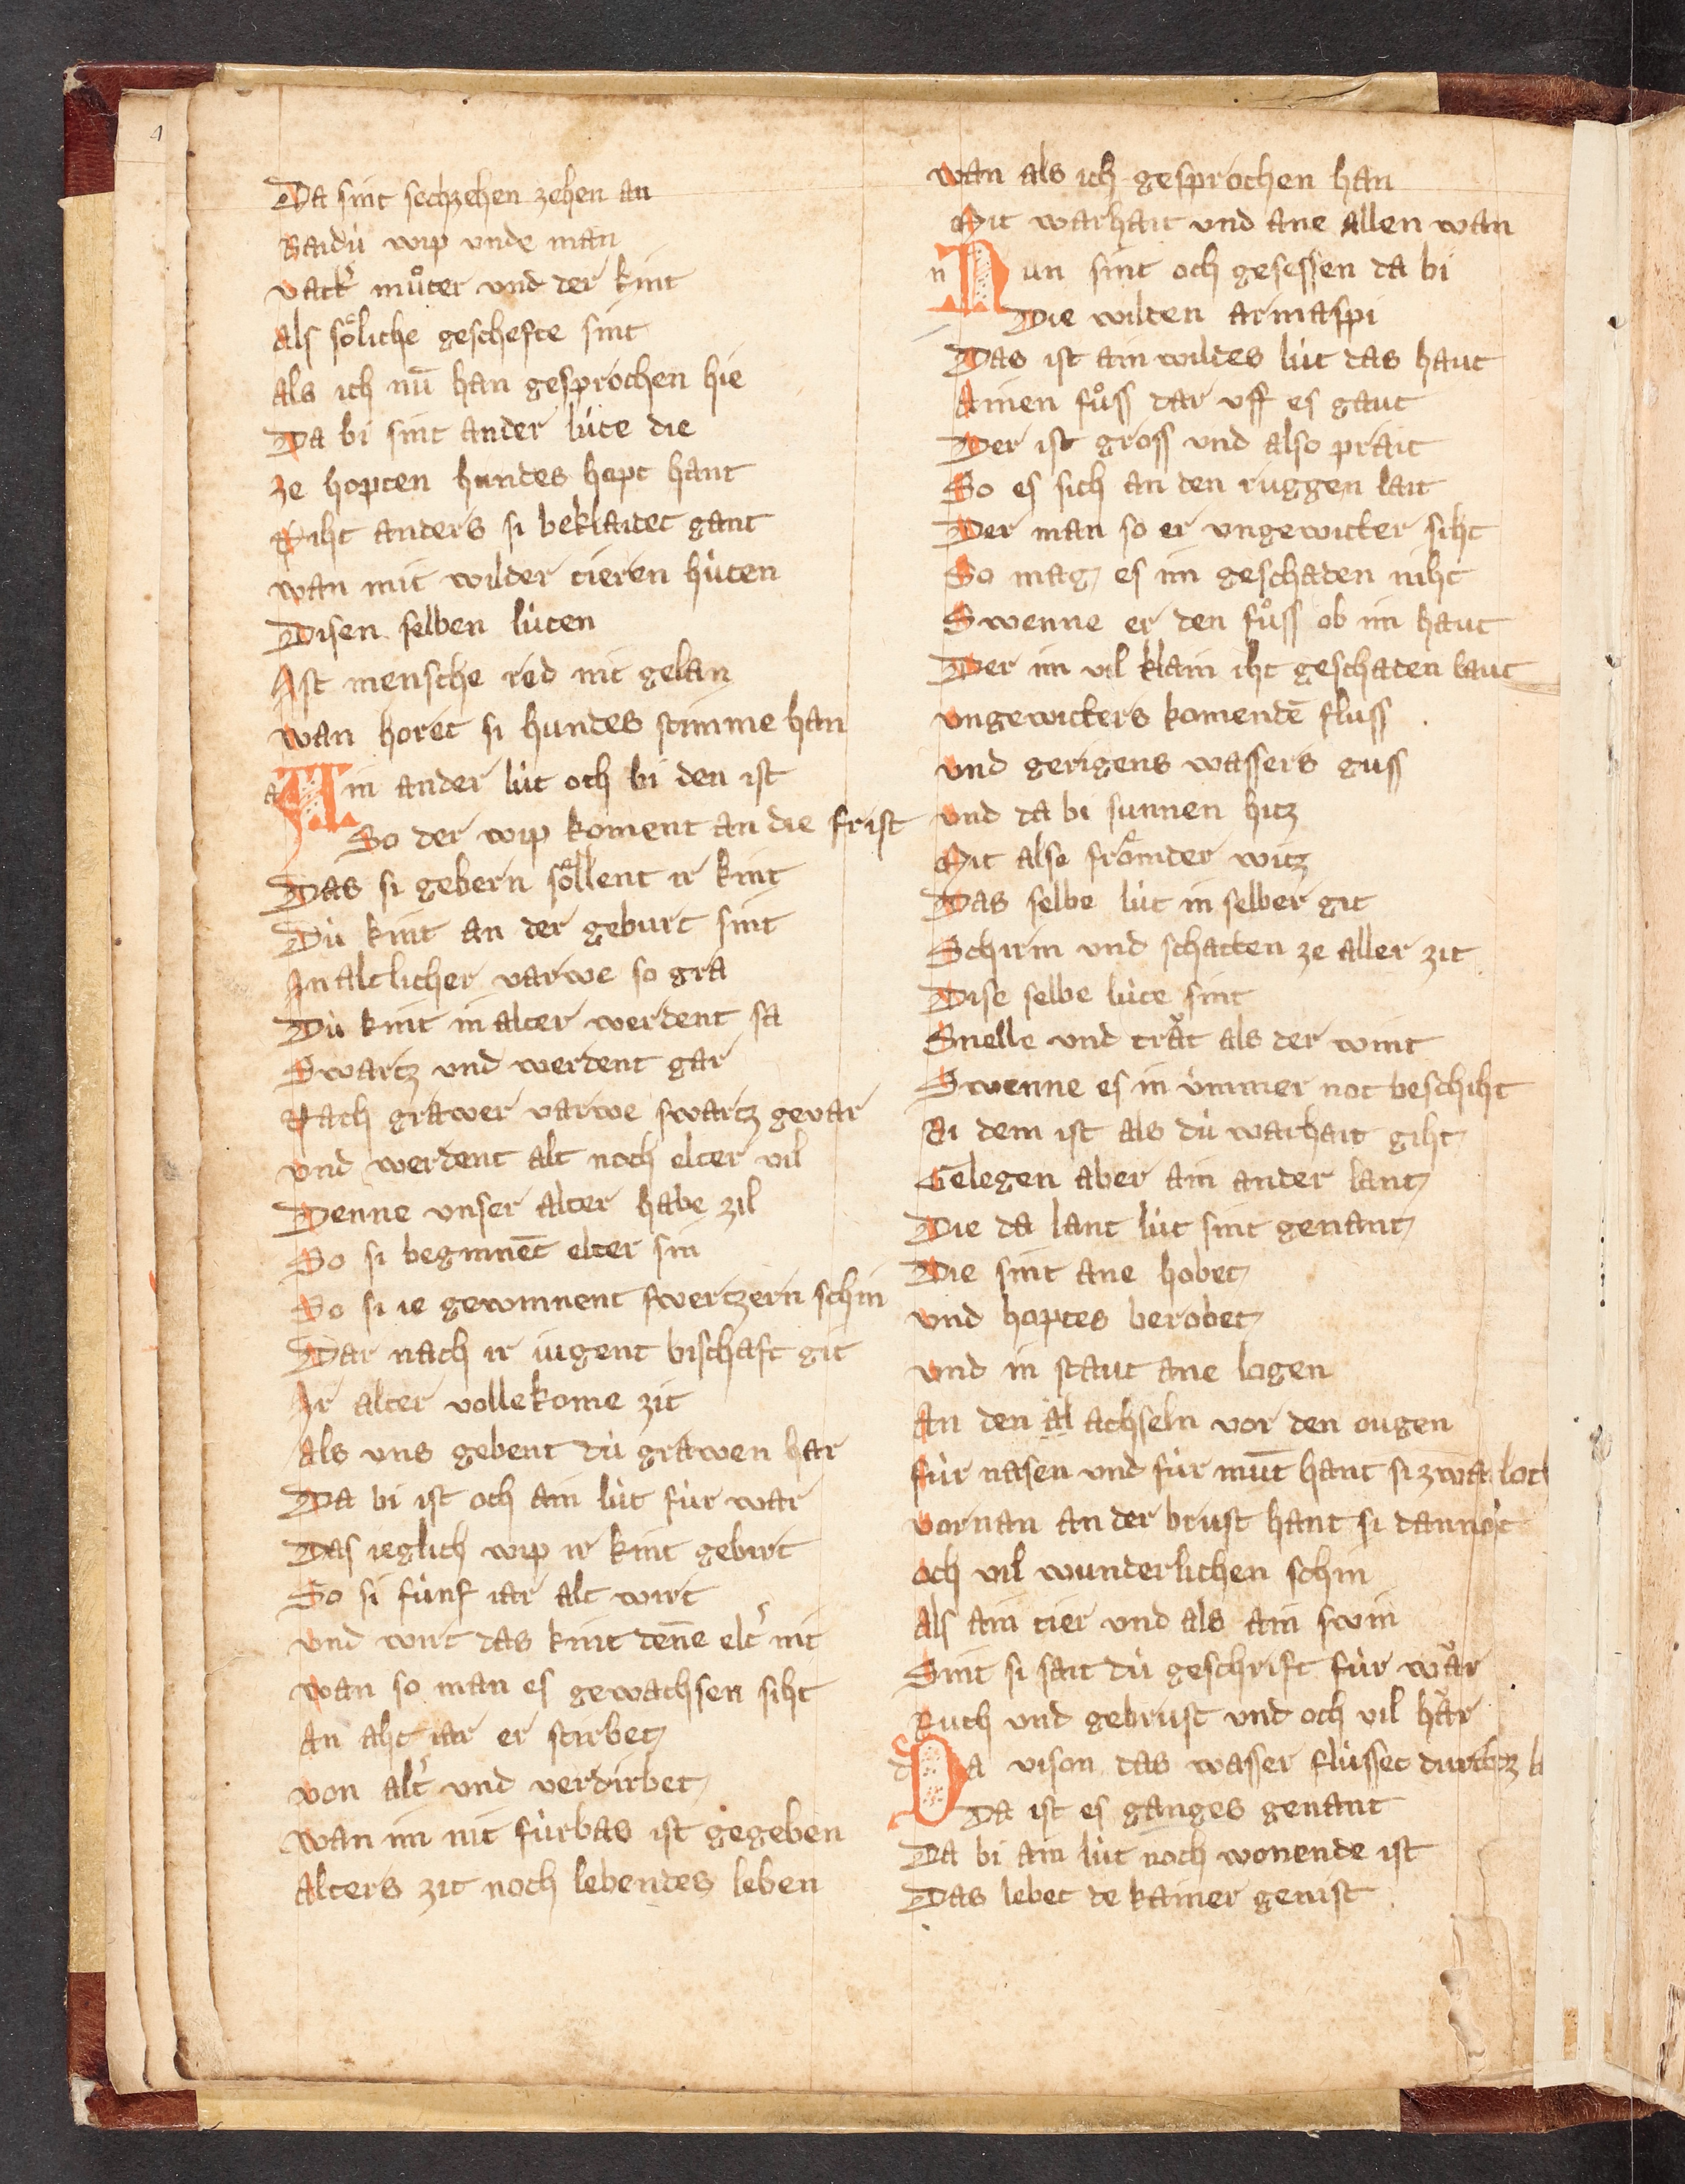 Da sint sechzehen zehen an
Baidú wip unde man
vatt͛ muͦter und der kint
Als soͤliche geschefte sint
Als ich nū han gesprochen hie
Da bi sint ander lúte die
Ze hopten hundes hopt hant
Niht anders si beklaidet gant
wan mit wilder tieren húten
Disen selben lúten
Ist mensche red nit gelan
wan horet si hundes stimme han
a Ain ander lút och bi den ist
So der wip koment an die frist
Das si gebern soͤllent ir kint
Dú kint an der geburt sint
In altlicher varwe so gra
Dú kint in alter werdent sa
Swartz und werdent gar
Nach grawer varwe swartz gevar
und werdent alt noch elter vil
Denne unser alter habe zil
So si beginnēt elter sin
So si ie gewinnent swertzern schin
Dar nach ir iugent bischaft git
Ir alter vollekome zit
Als uns gebent dú grawen har
Da bi ist och ain lút fúr war
Das ieglich wip ir kint gebirt
So si fúnf iar alt wirt
und wirt das kint den̄e elt͛ nit
wan so man es gewachsen siht
An aht iar er stirbet
von alt͛ und verdirbet
wan im nit fúrbas ist gegeben
Alters zit noch lebendes leben
wan als ich gesprochen han
Mit warhait und ane allen wan
n Nun sint och gesessen da bi
Die wilden arimaspi
Das ist ain wildes lút das haut
Ainen fuͦss dar uff es gaut
Der ist gross und also prait
So es sich an den ruggen lait
Der man so er ungewitter siht
So mag es im geschaden niht
Swenne er den fuͦss ob im haut
Der im vil klain iht geschaden laut
ungewitters komendē fluss
und gerigens wassers guss
und da bi sunnen hitz
Mit alse froͤmder witz
Das selbe lút in selber git
Schirm und schatten ze aller zit
Dise selbe lúte sint
Snelle und traͤt als der wint
Swenne es in úmmer not beschiht
Bi dem ist als dú warhait giht
Gelegen aber ain ander lant
Die da lant lút sint genant
Die sint ane hobet
und hoptes berobet
und in staut ane logen
An den al achseln vor den ougen
fúr nasen und fúr mūt hant si zwai loch
vornan an der brust hant si dannoc
och vil wunderlichen schin
Als ain tier und als ain swin
Sint si sait dú geschrift fúr waͤr
Ruch und gebrust und och vil haͤr
d Da vison das wasser flússet durch
Da ist es ganges genant
Da bi ain lút noch wonende ist
Das lebet de kainer genist